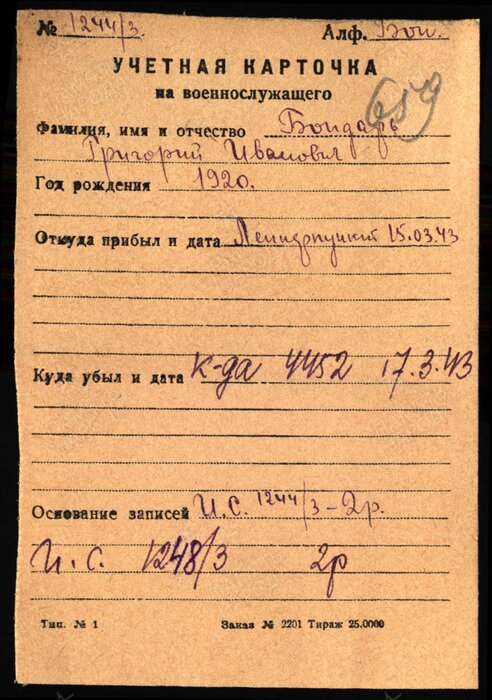 № 1244/3. Алф. Бон.
УЧЕТНАЯ КАРТОЧКА
на военнослужащего
659
Фамилия, имя и отчество Бондарь
Григорий Иванович
Год рождения 1920.
Откуда прибыл и дата 15.03.43
Куда убыл и дата к-да 4452 17.3.43
Основание записей И.С. 1244/3-2р.
И.С. 1248/3 2р
Тип. № 1 Заказ № 2201 Тираж 25.0000